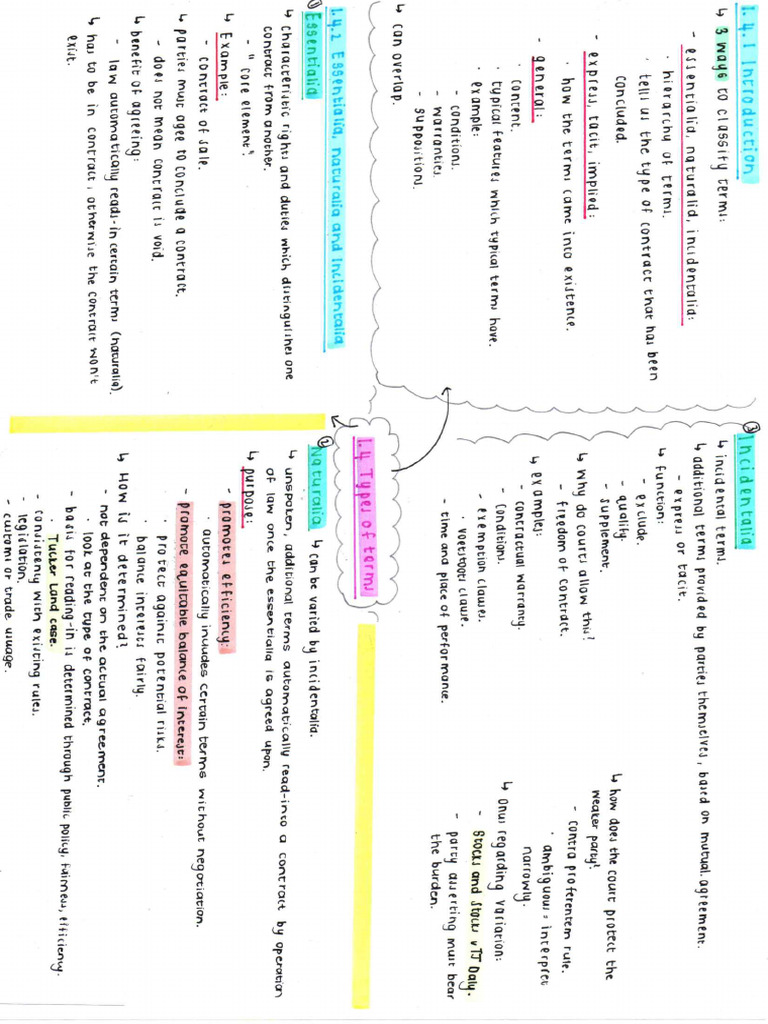 1.4 Types of terms
1.4.1 Introduction
↳ 3 ways to classify terms:
- essentialia, naturalia, incidentalia:
· hierarchy of terms.
· tells us the type of contract that has been
concluded.
- express, tacit, implied:
· how the terms came into existence.
- general:
· content.
· typical features which typical terms have.
· example:
- conditions.
- warranties.
- suppositions.
↳ can overlap.
1.4.2 Essentialia, naturalia and Incidentalia
① Essentialia
↳ characteristic rights and duties which distinguishes one
contract from another.
- "core element".
↳ Example:
- contract of sale.
↳ parties must agee to conclude a contract.
- does not mean contract is void.
↳ benefit of agreeing:
- law automatically reads-in certain terms (naturalia).
↳ has to be in contract, otherwise the contract won't
exist.
② Naturalia
↳ can be varied by incidentalia.
↳ unspoken, additional terms automatically read-into a contract by operation
of law once the essentialia is agreed upon.
↳ purpose:
- promotes efficiency:
· automatically includes certain terms without negotiation.
- promote equitable balance of interest:
· protect against potential risks.
· balance interests fairly.
↳ How is it determined?
- not dependent on the actual agreement.
· look at the type of contract.
- basis for reading-in is determined through public policy, fairness, efficiency.
· Tucker Land case.
- consistency with existing rules.
- legislation.
- customs or trade usuage.
③ Incidentalia
↳ incidental terms.
↳ additional terms provided by parties themselves, based on mutual agreement.
- express or tacit.
↳ function:
- exclude.
- qualify.
- supplement.
↳ why do courts allow this?
- freedom of contract.
↳ examples:
- contractual warranty.
- conditions.
- exemption clauses.
· voetstoots clause.
- time and place of performance.
↳ how does the court protect the
weaker party?
- contra proferentem rule.
· ambiguous = interpret
narrowly.
↳ onus regarding variation:
- Stocks and Stocks v TJ Daly.
- party asserting must bear
the burden.